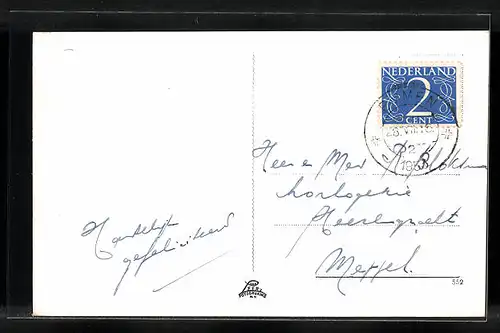 NEDERLAND
2
CENT
1953
Heer en Mev
horlogerie
Heerengracht
Meppel.
Hartelijk
gefeliciteerd
332